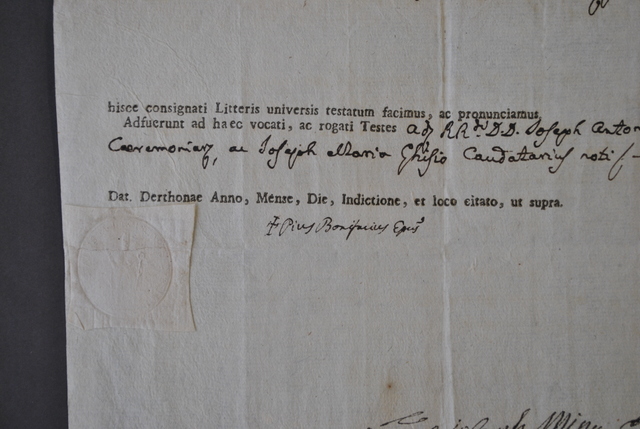 hisce consignati Litteris universis testatum facimus, ac pronunciamus,
Adfuerunt ad haec vocati, ac rogati Testes adm RR.di D.D. Joseph Anton
ac Joseph Maria Ghisio Caudatarius noti
Dat. Derthonae Anno, Mense, Die, Indictione, et loco citato, ut supra.
† Pius Bonifacius Epus